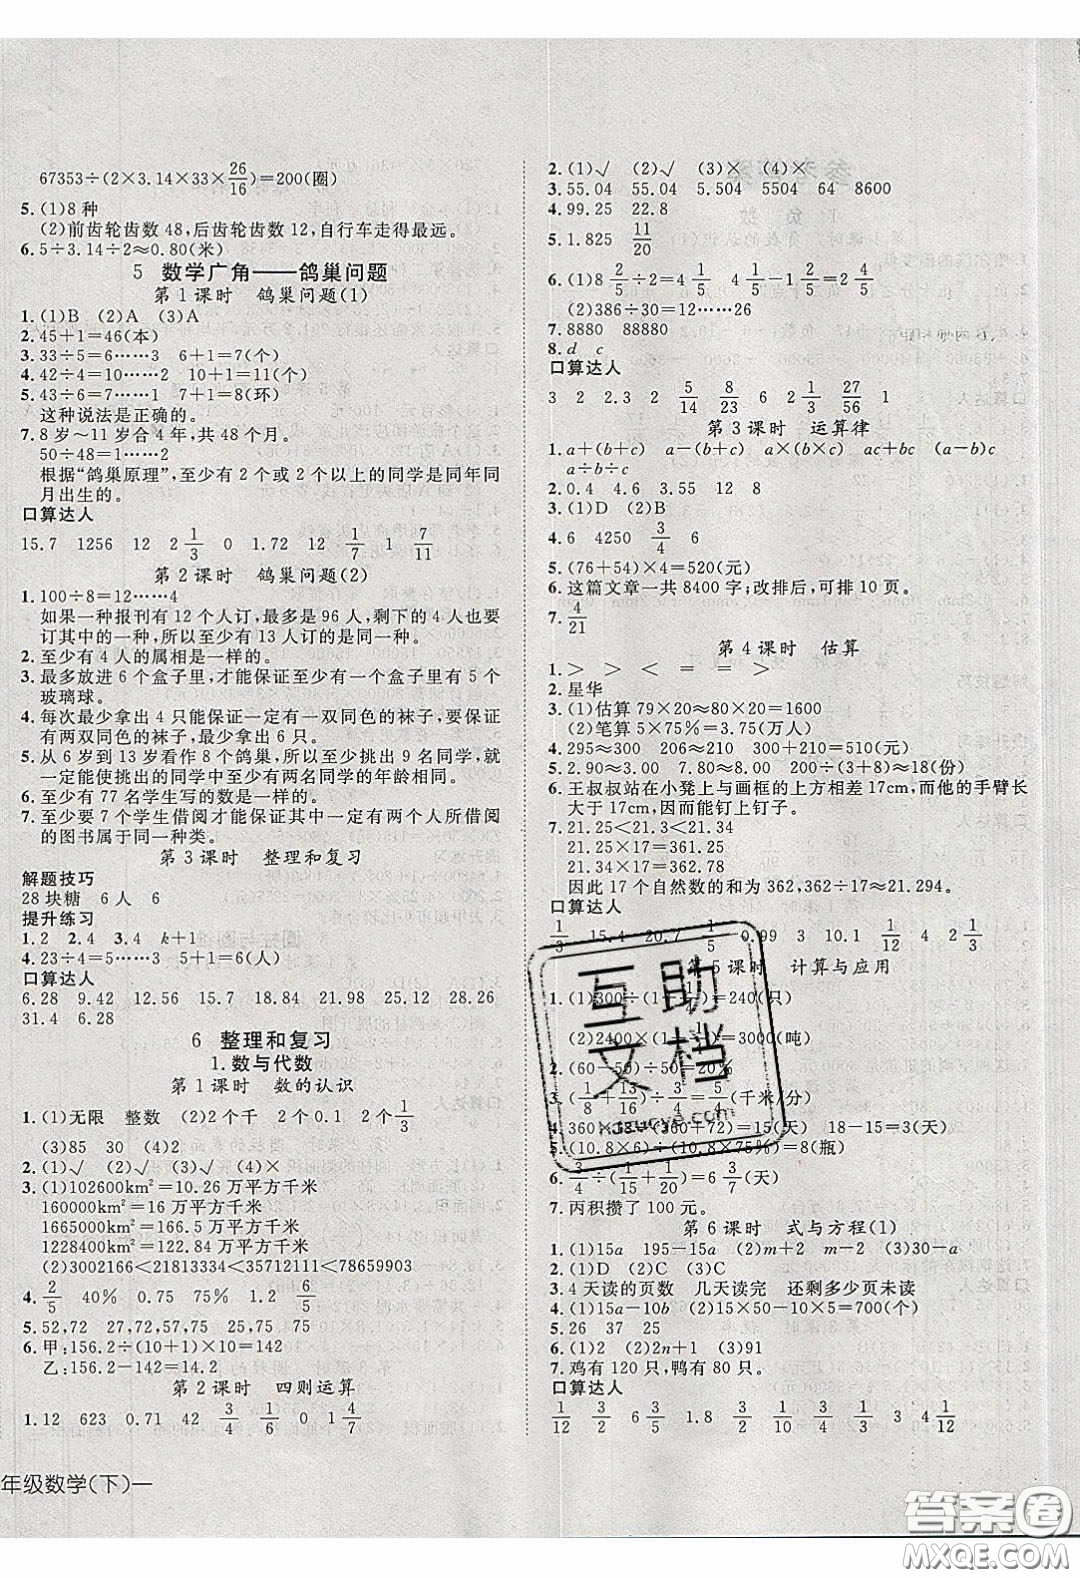 67353÷(2×3.14×33×26/16)=200(圈)
5.(1)8 种
(2)前齿轮齿数 48,后齿轮齿数 12,自行车走得最远。
6.5÷3.14÷2≈0.80(米)
5 数学广角——鸽巢问题
第 1 课时 鸽巢问题(1)
1.(1)B (2)A (3)A
2.45+1=46(本)
3.33÷5=6……3 6+1=7(个)
4.42÷4=10……2 10+1=11(个)
5.43÷6=7……1 7+1=8(环)
这种说法是正确的。
7.8 岁～11 岁合 4 年,共 48 个月。
50÷48=1……2
根据“鸽巢原理”,至少有 2 个或 2 个以上的同学是同年同
月出生的。
口算达人
15.7 1256 12 2 1/3 0 1.72 12 1/7 1 7/11
第 2 课时 鸽巢问题(2)
1.100÷8=12……4
如果一种报刊有 12 个人订,最多是 96 人,剩下的 4 人也要
订其中的一种,所以至少有 13 人订的是同一种。
2.至少有 4 人的属相是一样的。
3.最多放进 6 个盒子里,才能保证至少有一个盒子里有 5 个
玻璃球。
4.每次最少拿出 4 只能保证一定有一双同色的袜子,要保证
有两双同色的袜子,最少拿出 6 只。
5.从 6 岁到 13 岁看作 8 个鸽巢,所以至少挑出 9 名同学,就
一定能使挑出的同学中至少有两名同学的年龄相同。
6.至少有 77 名学生写的数是一样的。
7.至少要 7 个学生借阅才能保证其中一定有两个人所借阅
的图书属于同一种类。
第 3 课时 整理和复习
解题技巧
28 块糖 6 人 6
提升练习
1.2 2.4 3.4 k+1
4.23÷4=5……3 5+1=6(人)
口算达人
6.28 9.42 12.56 15.7 18.84 21.98 25.12 28.26
31.4 6.28
6 整理和复习
1.数与代数
第 1 课时 数的认识
1.(1)无限 整数 (2)2 个千 2 个 0.1 2 个 1/3
(3)85 30 (4)2
2.(1)√ (2)√ (3)√ (4)×
3.(1)102600km²=10.26 万平方千米
160000km²=16 万平方千米
1665000km²=166.5 万平方千米
1228400km²=122.84 万平方千米
(2)3002166<21813334<35712111<78659903
4.2/5 40% 0.75 75% 1.2 6/5
5.52,72 27,72,57,75 25,75 75
6.甲:156.2÷(10+1)×10=142
乙:156.2-142=14.2
第 2 课时 四则运算
1.12 623 0.71 42 3/4 1/6 0 1 4/7
年级数学(下)—
2.(1)√ (2)√ (3)× (4)×
3.55.04 55.04 5.504 5504 64 8600
4.99.25 22.8
5.1.81 11/20
6.(1)8 2/5÷2=4 1/5 4 4/5-2=2 4/5
(2)386÷30=12……26
7.8880 88880
8.d c
口算达人
3 2 2.3 2 5/14 8/23 6 2 1/3 27/56 1
第 3 课时 运算律
1.a+(b+c) a-(b+c) a×(b×c) ac+bc (a-b)c
a÷b÷c
2.0.4 4.6 3.55 12 8
3.(1)D (2)B
4.6 4250 3/4 6
5.(76+54)×4=520(元)
6.这篇文章一共 8400 字;改排后,可排 10 页。
7.4/21
第 4 课时 估算
1.> > < = = >
2.星华
3.(1)估算 79×20≈80×20=1600
(2)笔算 5×75%=3.75(万人)
4.295≈300 206≈210 300+210=510(元)
5.2.90≈3.00 7.80≈8.00 200÷(3+8)≈18(份)
6.王叔叔站在小凳上与画框的上方相差17cm,而他的手臂长
大于 17cm,因而能钉上钉子。
7.21.25<21.3<21.34
21.25×17=361.25
21.34×17=362.78
因此 17 个自然数的和为 362,362÷17≈21.294。
口算达人
1/3 15.4 20.7 1/5 0.99 3 10.1 1/12 4 2 1/3
第 5 课时 计算与应用
=240(只)
=3000(吨)
2.(60-50)÷50=20%
3.(1/8+13/16)÷3/4=5/4(千米/分)
=15(天) 18-15=3(天)
5.(10.8×6)÷(10.8×75%)=8(瓶)
6.3/4÷(1/15+1/20)=6 3/7(天)
7.丙积攒了 100 元。
第 6 课时 式与方程(1)
1.(1)15a 195-15a (2)m+2 m-2 (3)30-a
2.(1)D (2)C (3)D
3.4 天读的页数 几天读完 还剩多少页未读
4.(1)15a-10b (2)15×50-10×5=700(个)
5.26 37 25
6.(1)2 (2)2n+1 (3)91
7.鸡有 120 只,鸭有 80 只。
口算达人
1/12 3/5 6 3/5 1.8 3/2 3/10 4/9 3 4 1/12
互助
文档
答案圈
MXQE.COM